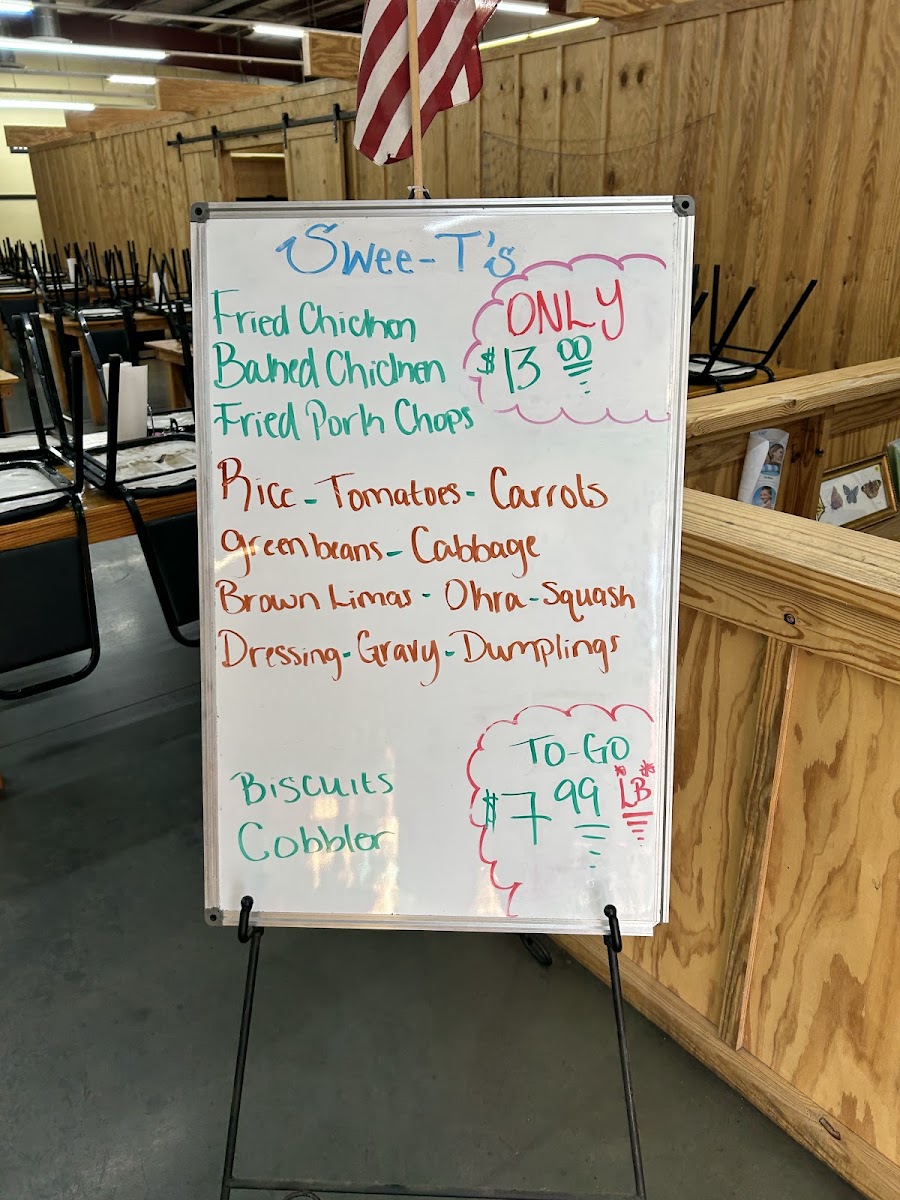 Swee-T's
Fried Chicken
Baked Chicken
Fried Pork Chops
ONLY
$13 00
Rice - Tomatoes - Carrots
greenbeans - Cabbage
Brown Limas - Okra - Squash
Dressing - Gravy - Dumplings
Biscuits
Cobbler
TO-GO
$7 99 LB